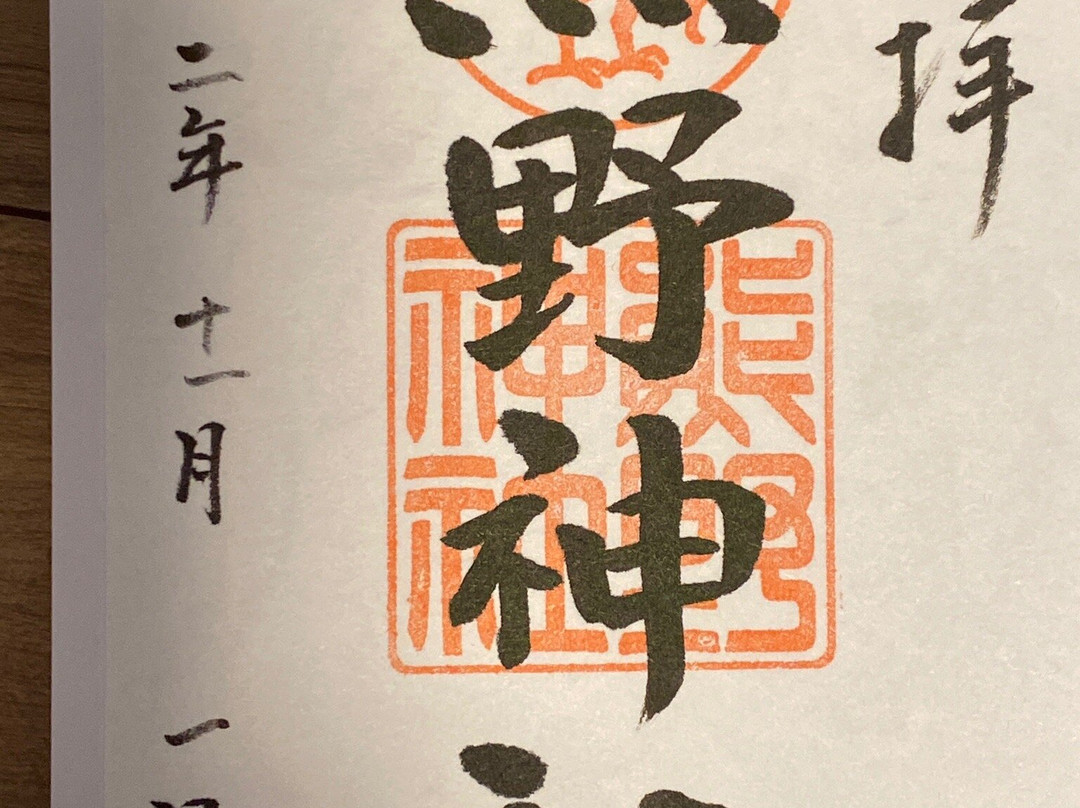 拝
野神
熊野
神社
二年 十一月 一